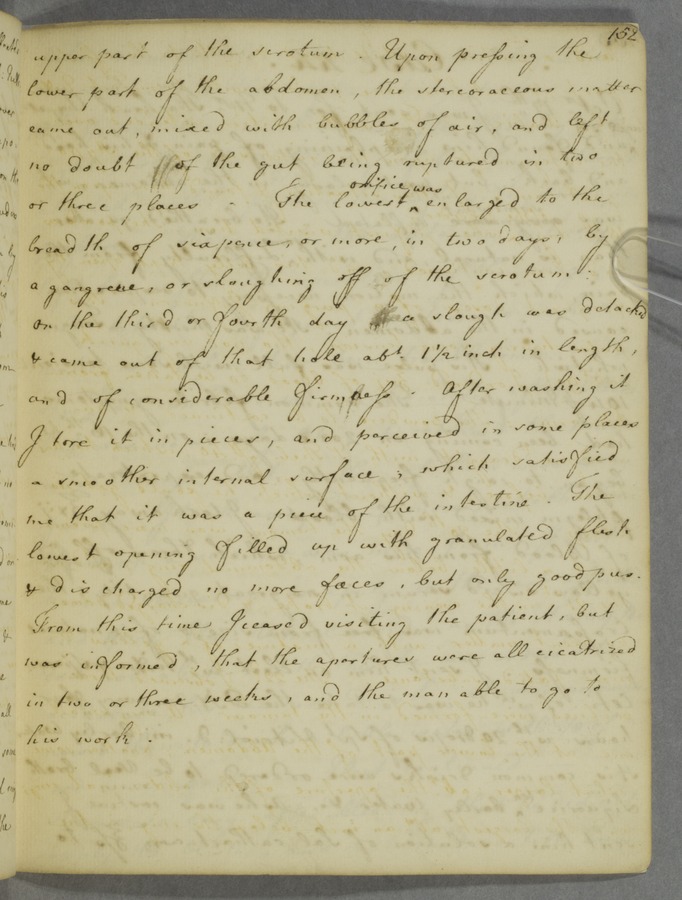 152
upper part of the scrotum. Upon pressing the
lower part of the abdomen, the stercoraceous matter
came out, mixed with bubbles of air, and left
no doubt of the gut being ruptured in two
or three places. The lowest orifice was enlarged to the
breadth of sixpence, or more, in two days, by
a gangrene, or sloughing off of the scrotum:
on the third or fourth day a slough was detached
& came out of that hole abt. 1 1/2 inch in length,
and of considerable firmness. After washing it
I tore it in pieces, and perceived in some places
a smoother internal surface; which satisfied
me that it was a piece of the intestine. The
lowest opening filled up with granulated flesh
& discharged no more fæces, but only good pus.
From this time I ceased visiting the patient, but
was informed, that the apertures were all cicatrized
in two or three weeks, and the man able to go to
his work.